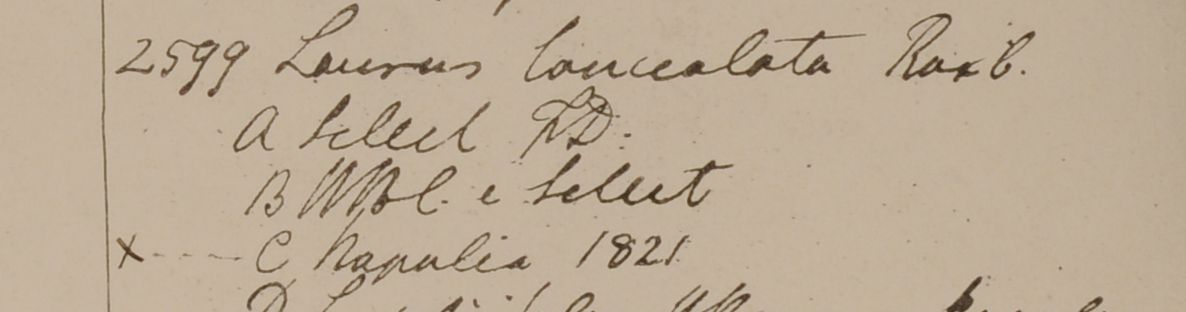 2599 Laurus lanceolata Roxb.
A Silhet FD.
B HBC. e Silhet
x - - - - C Napalia 1821